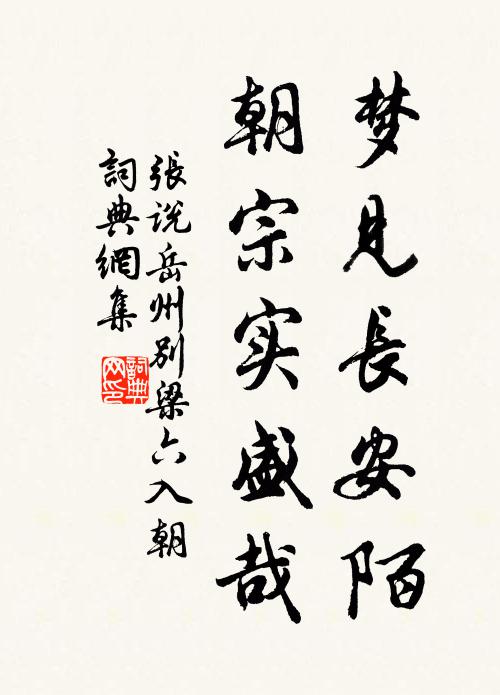 梦见長安陌
朝宗实盛哉
張说岳州別梁六入朝
詞典網集
詞典
网印